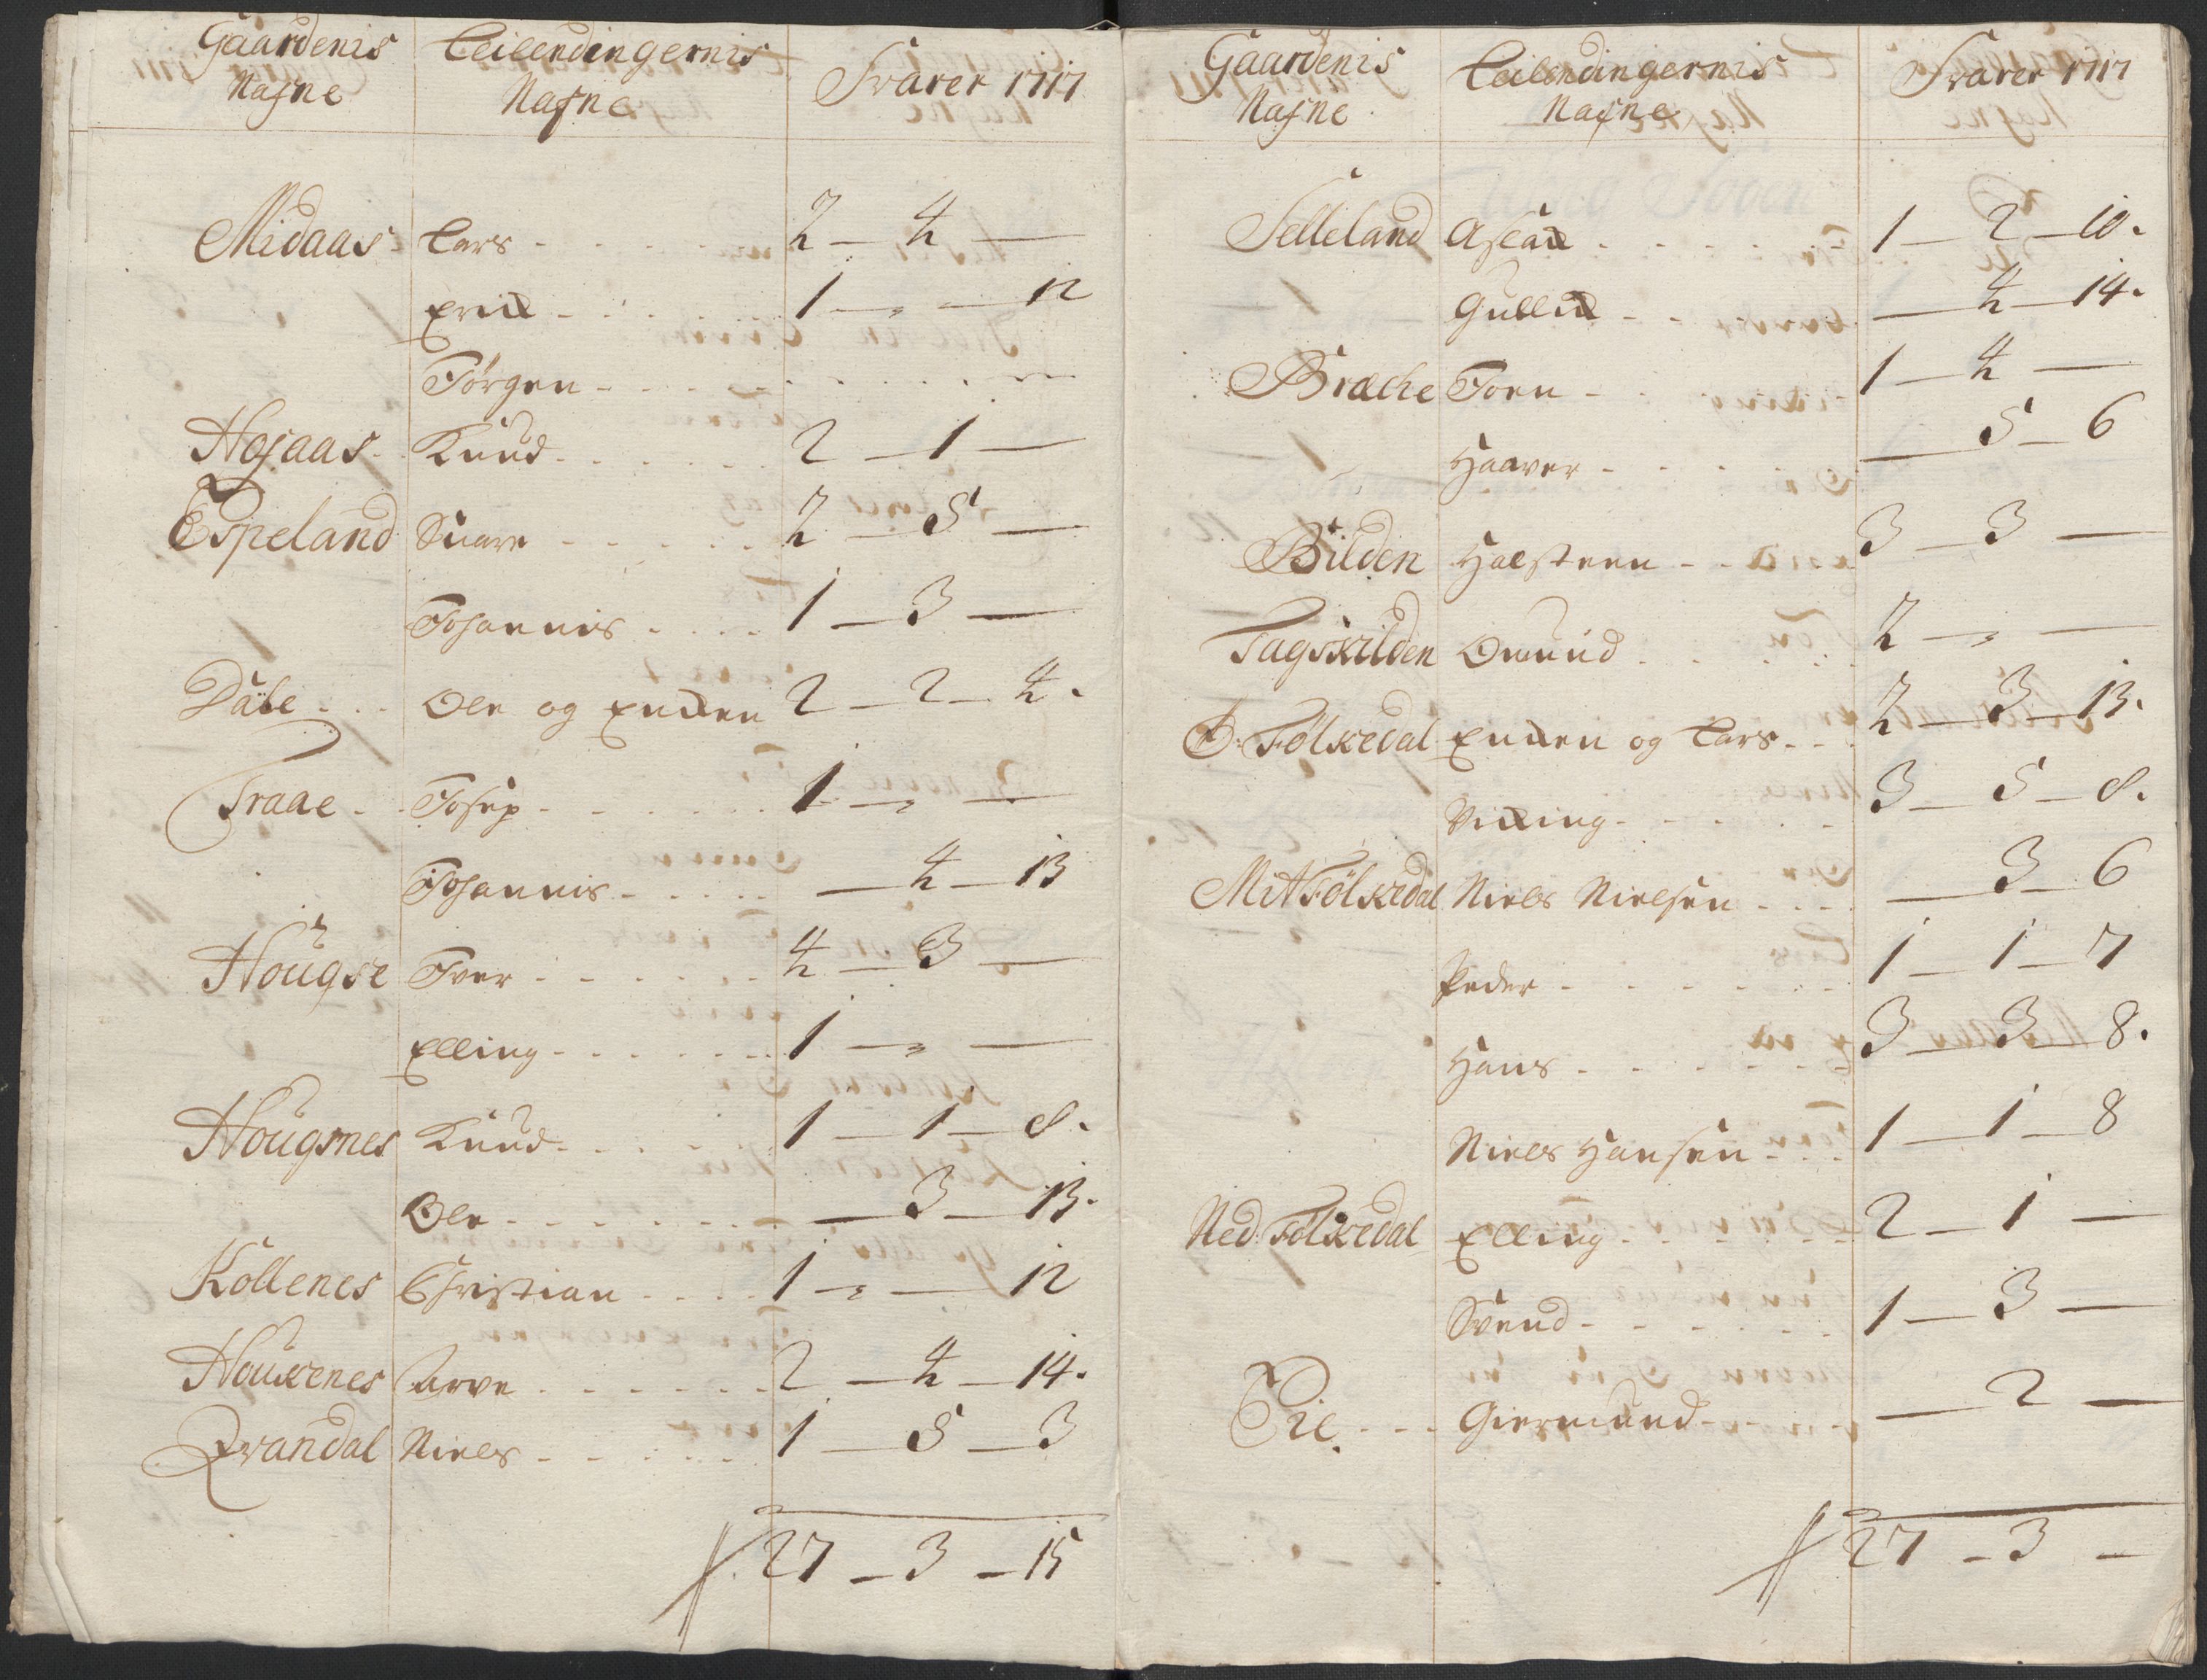 Gaardenis Nafne | Leilendingernis Nafne | Svarer 1717
Midaas | Lars - - - | 2 — 4 —
Erich - - - | 1 — " — 12
Jørgen - - - | - - -
Hofaas | Knud - - - | 2 — 1 —
Espeland | Snare - - - | 2 — 5 —
Johannis - - - | 1 — 3 —
Dale - - | Ole og Enchen | 2 — 2 — 4 .
Traae - - | Josep - - - | 1 — " —
Johannis - - - | — 4 — 13
Hougse | Iver - - - | 4 — 3 —
Elling - - - | 1 — " —
Hougsnes | Knud - - - | 1 — 1 — 8 .
Ole - - - | — 3 — 13 .
Kollenes | Christian - - - | 1 — " — 12
Houxenes | Arve - - - | 2 — 4 — 14 .
Qvandal | Niels - - - | 1 — 5 — 3
27 — 3 — 15
Gaardenis Nafne | Leilendingernis Nafne | Svarer 1717
Selleland | Aslach - - - | 1 — 2 — 10 .
Gullich - - - | — 4 — 14 .
Bræche | Joen - - - | 1 — 4 —
Haaver - - - | — 5 — 6
Bilden | Halsteen - - - | 3 — 3 —
Tagskilden | Omund - - - | 2 — " —
Ø: Folkedal | Enchen og Lars - - | 2 — 3 — 13 .
Viching - - - | 3 — 5 — 8 .
Mit Folkedal | Niels Nielsen - - - | — 3 — 6
Peder - - - | 1 — 1 — 7
Hans - - - | 3 — 3 — 8 .
Niels Hansen - - - | 1 — 1 — 8
Ned: Folkedal | Elling - - - | 2 — 1 —
Svend - - - | 1 — 3 —
Eie - - - | Giermund - - - | — 2 —
27 — 3 —